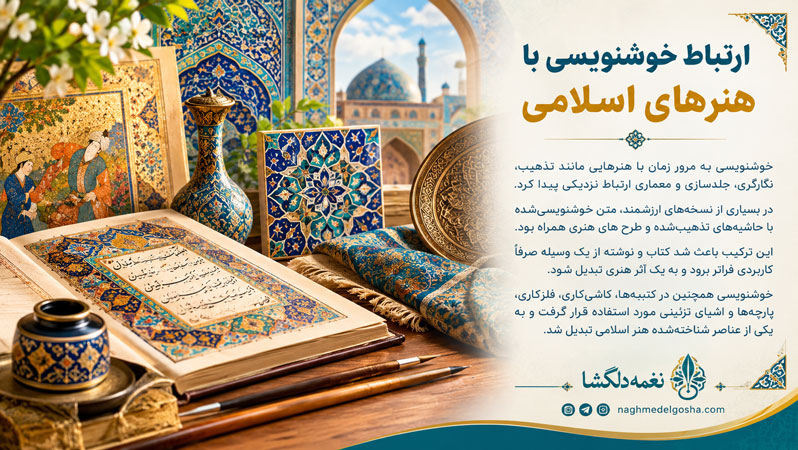 ارتباط خوشنویسی با
هنرهای اسلامی
خوشنویسی به مرور زمان با هنرهایی مانند تذهیب،
نگارگری، جلدسازی و معماری ارتباط نزدیکی پیدا کرد.
در بسیاری از نسخه‌های ارزشمند، متن خوشنویسی‌شده
با حاشیه‌های تذهیب‌شده و طرح های هنری همراه بود.
این ترکیب باعث شد کتاب و نوشته از یک وسیله صرفاً
کاربردی فراتر برود و به یک آثر هنری تبدیل شود.
خوشنویسی همچنین در کتیبه‌ها، کاشی‌کاری، فلزکاری،
پارچه‌ها و اشیای تزئینی مورد استفاده قرار گرفت و به
یکی از عناصر شناخته‌شده هنر اسلامی تبدیل شد.
نغمه‌دلگشا
naghmedelgosha.com